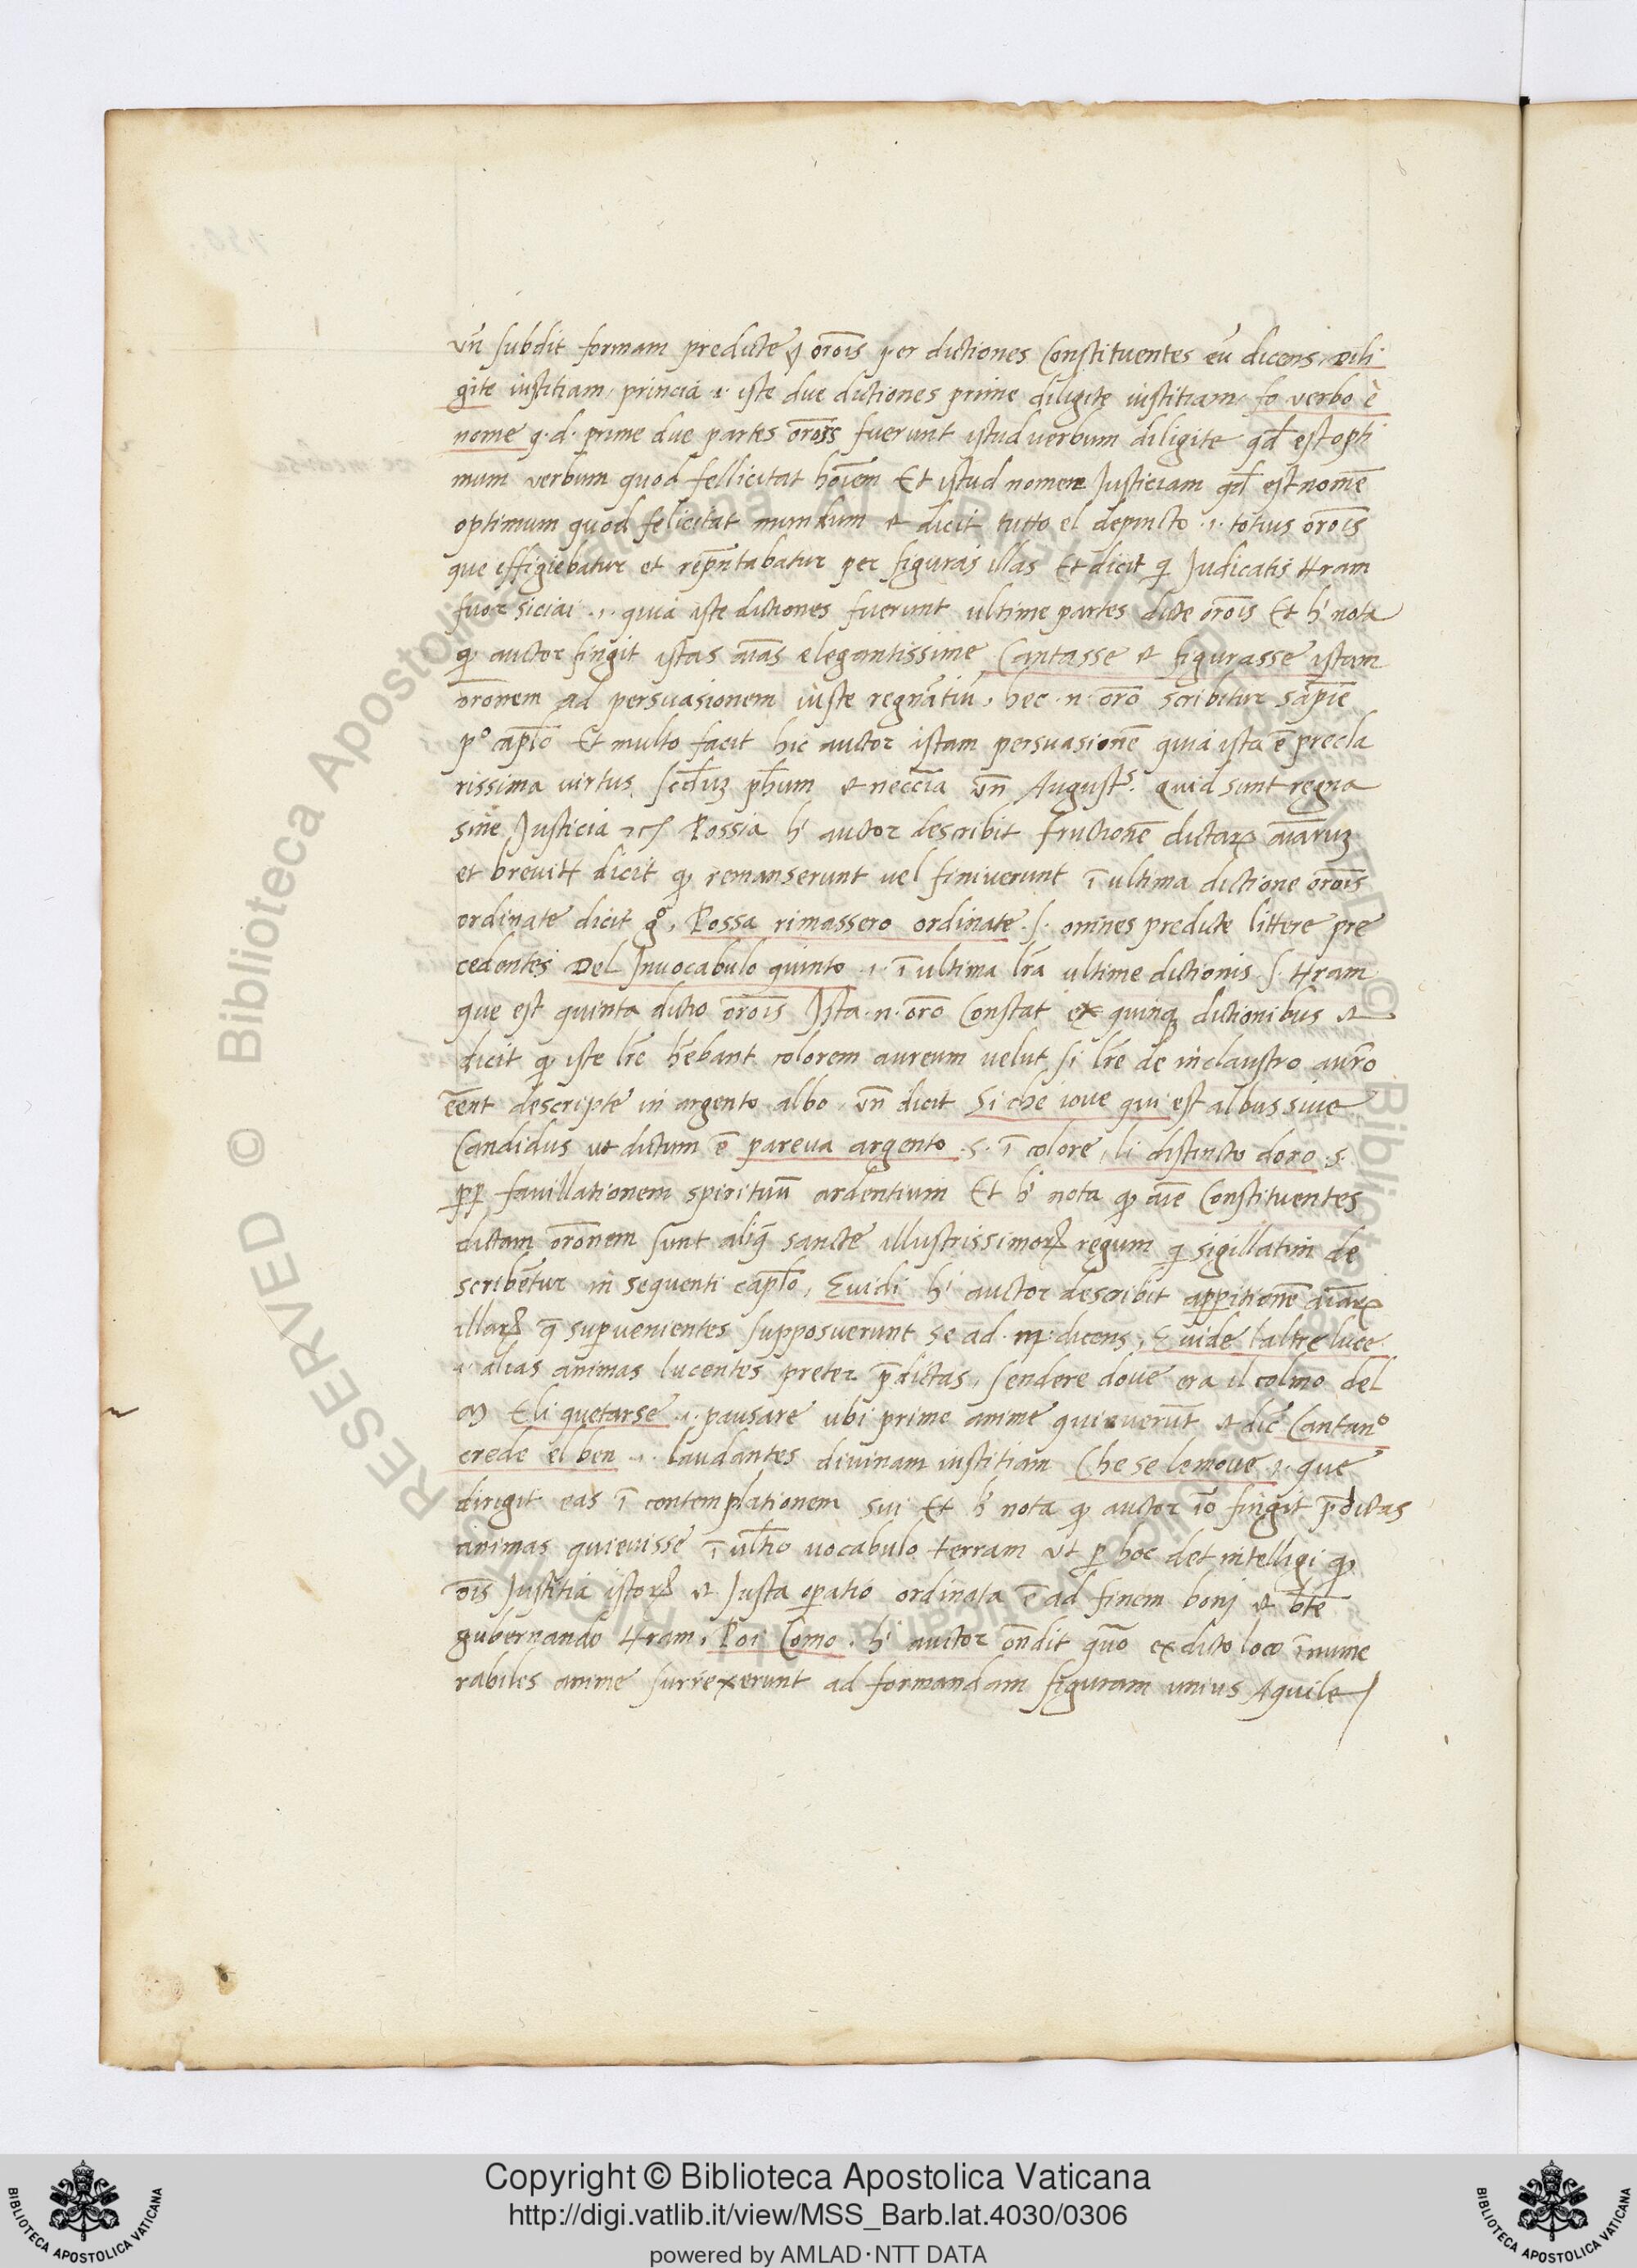 vn̄ subdit formam predicte orōis per dictiones Constituentes eū dicens, Dili
gite iustitiam, princia .i. iste due dictiones prime diligite iustitiam, fo verbo è
nome q.d. prime due partes orōis fuerunt istud verbum diligite qd̄ est opti
mum verbum quod fellicitat hoīem Et istud nomen Justiciam qd̄ est nomē
optimum quod felicitat mundum et dicit tutto el depincto .i. totius orōis
que effigiebatur et rep̄ntabatur per figuras illas Et dicit q Judicatis tt̄ram
fuor siciai .i. quia iste dictiones fuerunt ultime partes dicte orōis Et h' nota
q auctor fingit istas aīas elegantissime Cantasse et figurasse istam
orōnem ad persuasionem iuste regnātiū, hec .n. orō scribitur sāpiē
p° cap̄lo Et multo facit hic auctor istam persuasionē quia ista ē precla
rissima virtus, scd̄uȝ ph̄um et neccīa vn̄ August⁹. quid sunt regna
sine Justicia rcs Possia h' auctor describit fructionē dictaꝝ aīaruȝ
et brevitt̄ dicit q remanserunt vel finiverunt ī ultima dictione orōis
ordinate dicit g°, Possa rimassero ordinate .s. omnes predicte littere pre
cedentes Del Jnvocabulo quinto .i. ī ultima lr̄a ultime dictionis .s. tt̄ram
que est quinta dictio orōis Jsta .n. orō Constat ex quinqȝ dictionibus et
dicit q iste lr̄e hēbant colorem aureum velut si lr̄e de inclaustro auro
eēnt descripte in argento albo, vn̄ dicit Si che iove qui est albus sive
Candidus ut dictum ē pareva argento .s. ī colore, li distincto doro .s.
pp̄ favillationem spirituū ardentium Et h' nota q aīe Constituentes
dictam orōnem sunt aliq̄ sancte illustrissimoꝝ regum q sigillatim de
scribētur in sequenti cap̄lo, Evidi h' auctor describit appitionē aīaꝝ
illaꝝ q̄ supvenientes supposuerunt se ad .m. dicens, E vide laltre luce
.i. alias animas lucentes preter p̄dictas, sendere dove era il colmo del
m E li quetarse .i. pausare ubi prime anime quieverūt et dic̄ Cantan°
crede el ben .i. laudantes divinam iustitiam Che se lemove .i. que
dirigit eas ī contemplationem sui Et h' nota q auctor iō fingit p̄dictas
animas quievisse ī ult̄io vocabulo terram ut p hoc det intelligi q
oīs Justitia istoꝝ et Justa opatio ordinata ē ad finem bonj et bēte
gubernando tt̄ram, Poi Como, h' auctor on̄dit quō ex dicto loco īnume
rabiles anime surrexerunt ad formandam figuram unius Aquile
RESERVED © Biblioteca Apostolica Vaticana
Copyright © Biblioteca Apostolica Vaticana
http://digi.vatlib.it/view/MSS_Barb.lat.4030/0306
powered by AMLAD·NTT DATA
BIBLIOTECA APOSTOLICA VATICANA
BIBLIOTECA APOSTOLICA VATICANA